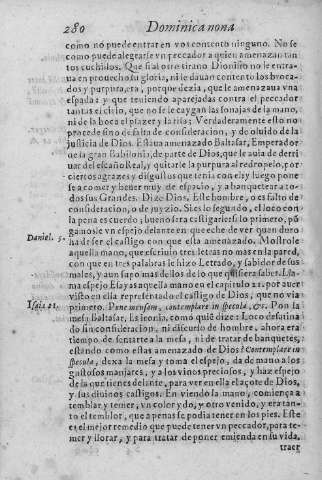 280 Dominica nona
como nó puede entrar en vos contento ninguno. No se
como puede alegrarse vn peccador a quien amenazan tan
tos cuchillos. Que si al otro tirano Dionisio no le entra-
ua en prouecho su gloria, ni le dauan contento los broca-
dos y purpura, era, porque dezia, que le amenazaua vna
espada: y que teniendo aparejadas contra el peccador
tantas el cielo, que no se le caygan las sonajas de la mano,
ni de la boca el plazer y la risa: Verdaderamente esto no
procede sino de falta de consideracion, y de oluido de la
justicia de Dios. Estaua amenazado Baltasar, Emperador
de la gran Babilonia, de parte de Dios, que le auia de derri
uar del escaño Real, y quitarle la purpura al redropelo, por
ciertos agrazes y disgustos que tenia con el: y luego pone
se a comer y beuer muy de espacio, y a banquetear a to-
dos sus Grandes. Dize Dios. Este hombre, o es falto de
consideracion, o de juyzio. Si es lo segundo, el loco con
la pena es cuerdo; bueno sera castigarle: si lo primero, põ
gamosle vn espejo delante en que eche de ver quan duro
Daniel. 5. ha de ser el castigo con que esta amenazado. Mostrole
aquella mano, que escriuio tres letras no mas en la pared,
con que en tres palabras le hizo Letrado, y sabidor de sus
males, y aun sapo mas dellos de lo que quisiera saber. Lla-
ma espejo Esayas aquella mano en el capitulo 21. por auer
visto en ella representado el castigo de Dios, que no via
Isaiæ 21. primero. Pone mensam, contemplare in specula, &c. Pon la
mesa Baltasar. Es ironia, como quiē dize: Loco desatina
do sin consideracion, ni discurso de hombre, ahora era
tiempo de sentarte a la mesa, ni de tratar de banquetes,
estando como estas amenazado de Dios? Contemplare in
specula, dexa la mesa y toma el espejo, da de mano a los
gustosos manjares, y a los vinos preciosos, y haz espejo
de la que tienes delante, para ver en ella el açote de Dios,
y sus diuinos castigos. En viendo la mano, comiença a
temblar y temer, vn color y do, y otro venido, y era tan-
to el temblor, que apenas se podia tener en los pies. Este
es el mejor remedio que puede tener vn peccador, para te-
mer y llorar, y para tratar de poner emienda en su vida,
traer